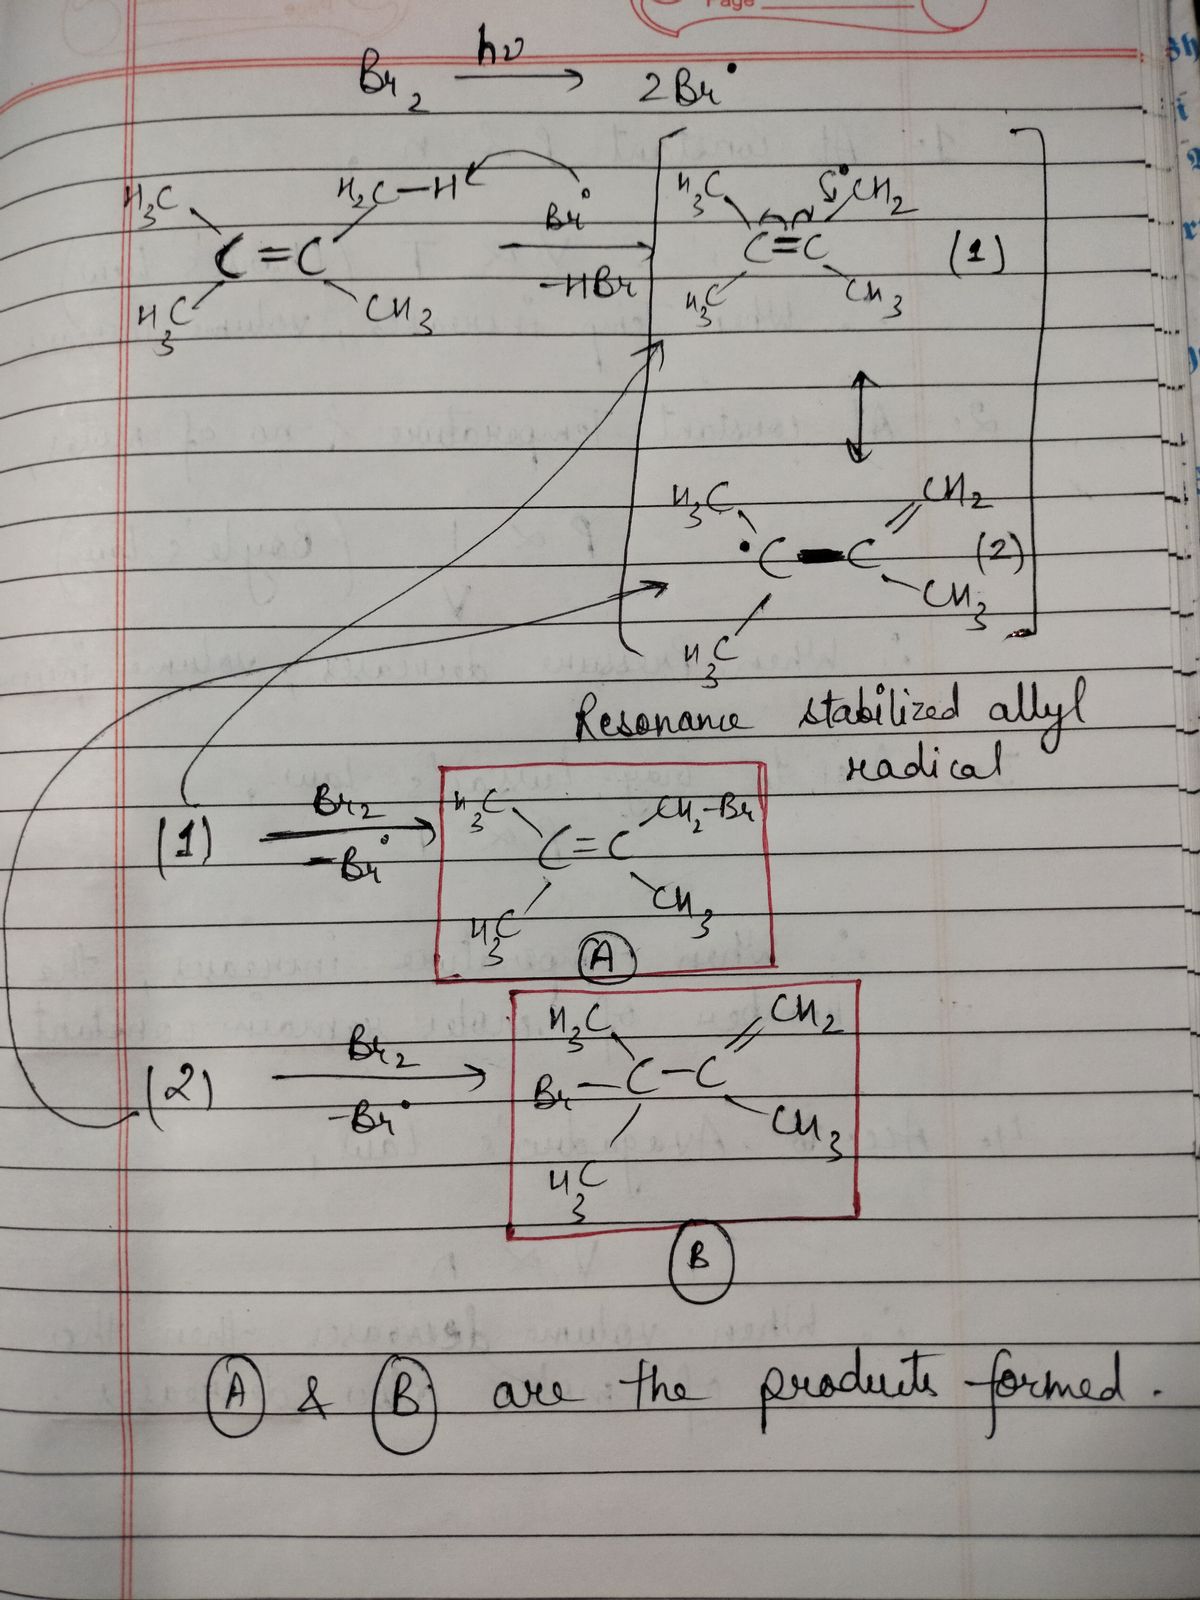 Page
hν
Br2 → 2Br•
H3C H2C-H
C=C
H3C CH3
Br•
-HBr
H3C •CH2
C=C (1)
H3C CH3
H3C CH2
•C-C (2)
H3C CH3
Resonance stabilized allyl
radical
(1) Br2
-Br•
H3C CH2-Br
C=C
H3C CH3
A
(2) Br2
-Br•
H3C CH2
Br-C-C
H3C CH3
B
A & B are the products formed.